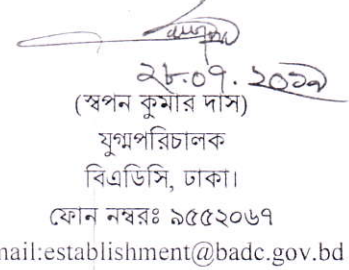 ২৮.০৭.২০১৯
(স্বপন কুমার দাস)
যুগ্মপরিচালক
বিএডিসি, ঢাকা।
ফোন নম্বরঃ ৯৫৫২০৬৭
mail:establishment@badc.gov.bd